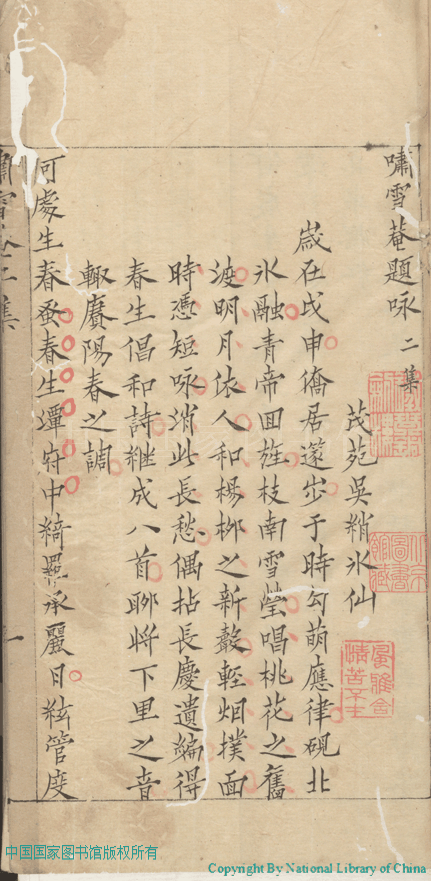 嘯雪菴題咏 二集
茂苑吳綃氷仙
歲在戊申僑居邃步于時勾萌應律硯北
氷融青帝回旌枝南雪瑩唱桃花之舊
渡明月依人和楊柳之新聲輕烟撲面
時憑短咏消此長愁偶拈長慶遺編得
春生倡和詩継成八首聊將下里之音
輙賡陽春之調
何處生春蚤春生潭府中綺羅承麗日絃管度
中国国家图书馆版权所有
Copyright By National Library of China